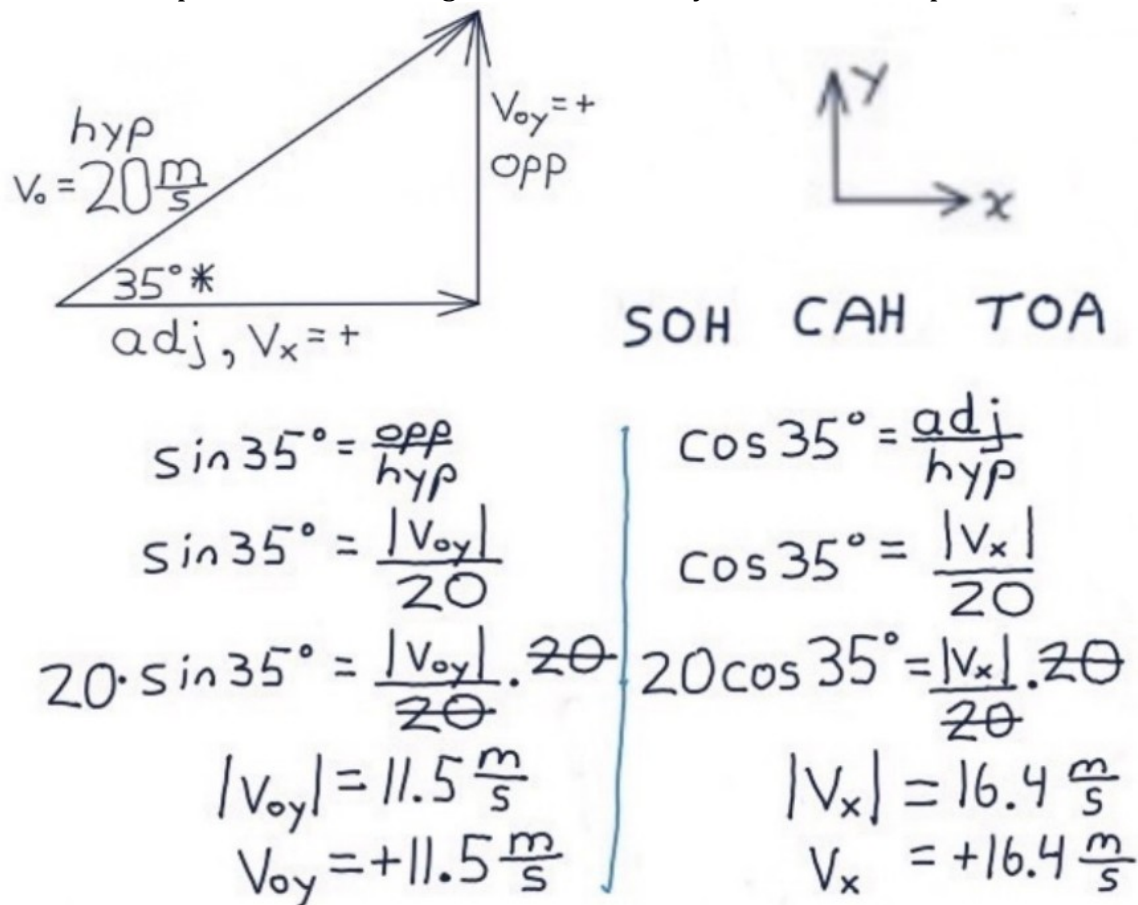 hyp
V₀ = 20 m/s
V₀y = +
opp
35°*
adj, Vₓ = +
y
x
SOH CAH TOA
sin 35° = opp/hyp
sin 35° = |V₀y|/20
20·sin 35° = |V₀y|/20 · 20
|V₀y| = 11.5 m/s
V₀y = +11.5 m/s
cos 35° = adj/hyp
cos 35° = |Vₓ|/20
20 cos 35° = |Vₓ|/20 · 20
|Vₓ| = 16.4 m/s
Vₓ = +16.4 m/s